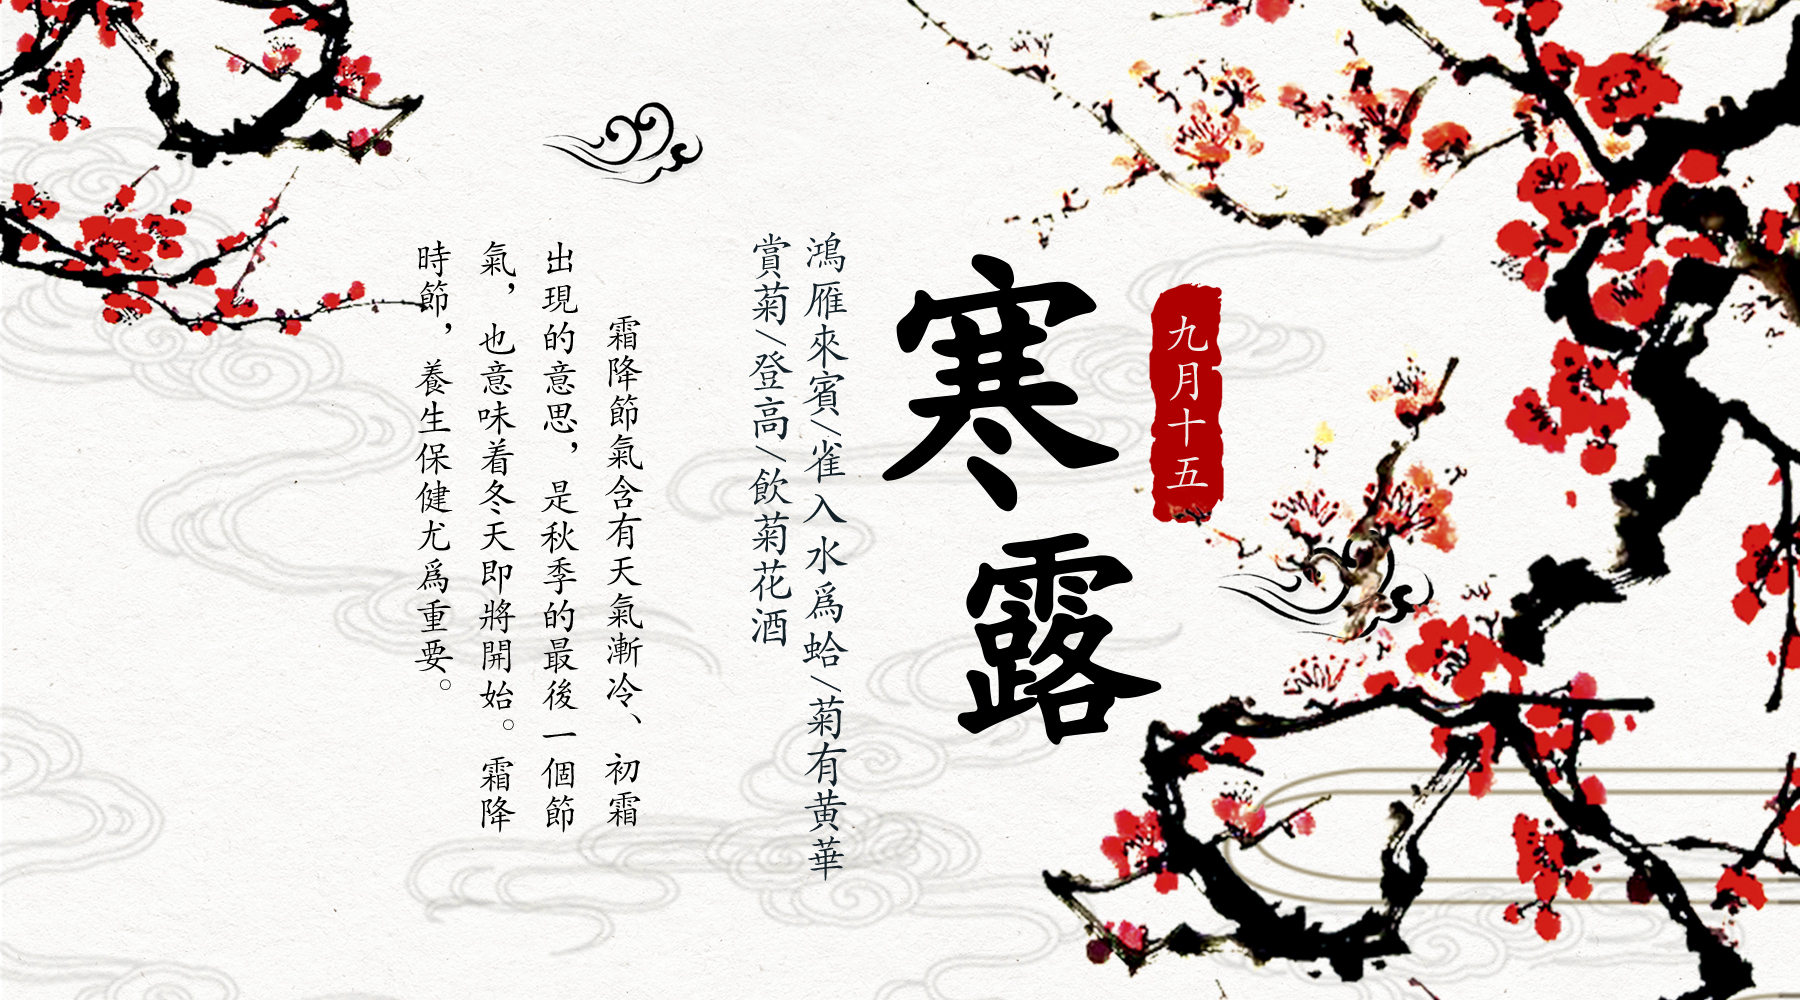 九月十五
寒露
鴻雁來賓/雀入水爲蛤/菊有黄華
賞菊/登高/飲菊花酒
霜降節氣含有天氣漸冷、初霜
出現的意思，是秋季的最後一個節
氣，也意味着冬天即將開始。霜降
時節，養生保健尤爲重要。